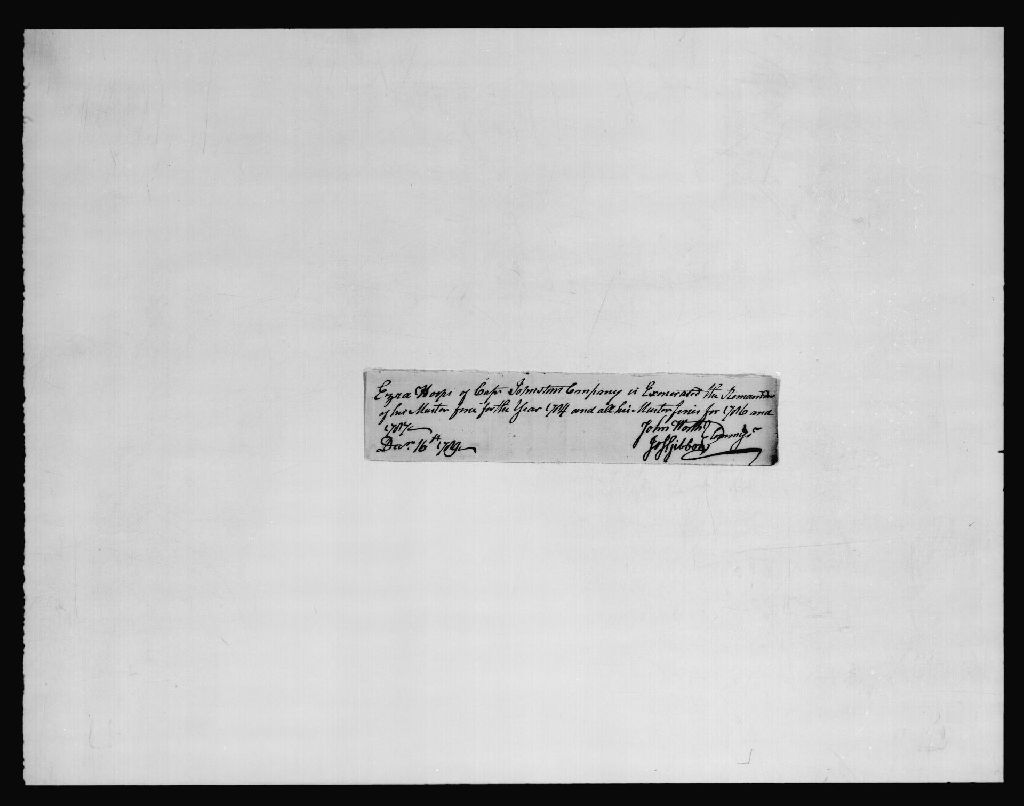 Ezra Hoops of Capt Johnstons Company is Exonerated the Remainder
of his Muster fines for the Year 1784 and all his Muster fines for 1786 and
1787
John Worth
Decr 16th 1789 Jos Gibbons